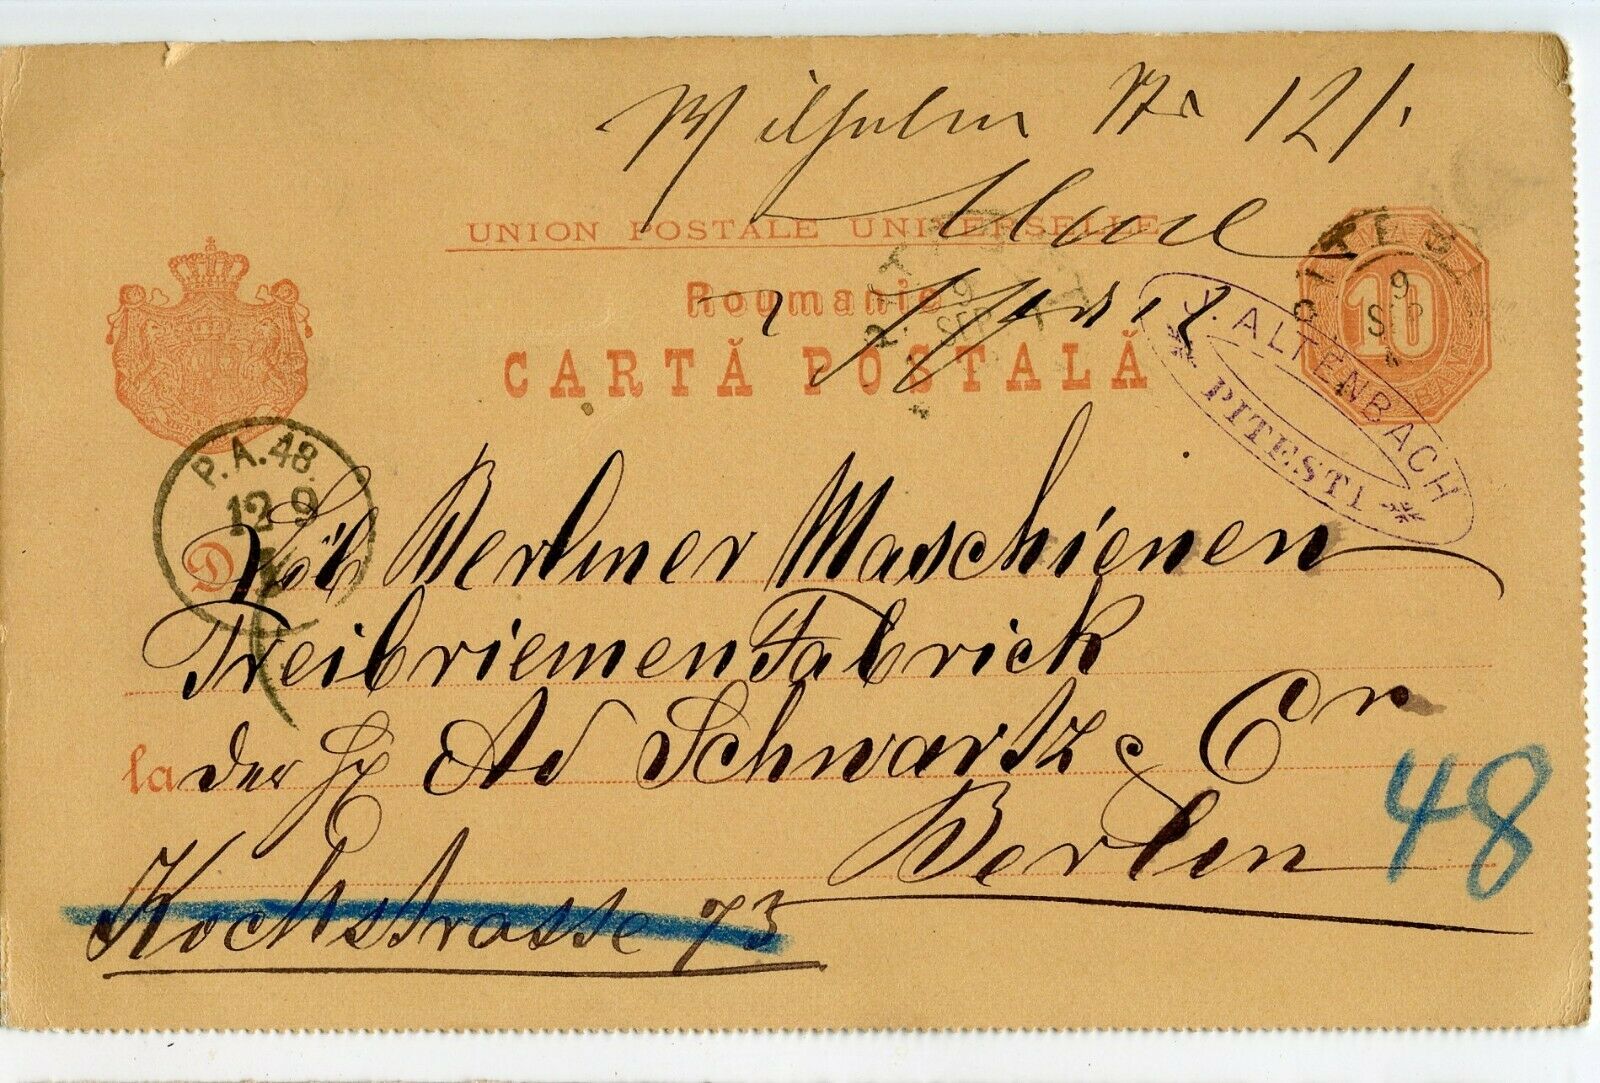 Wilhelm Str 121.
UNION POSTALE UNIVERSELLE
Roumanie
CARTĂ POSTALĂ
10
BANI
PITESTI
9
SEP
PITESTI
9
SEP
J. ALTENBACH
* PITESTI *
P.A.48.
12 9
D Löb Berliner Maschienen
Treibriemen Fabrick
la der H Ad Schwartz & Co
Berlin
48
Kochstrasse 73